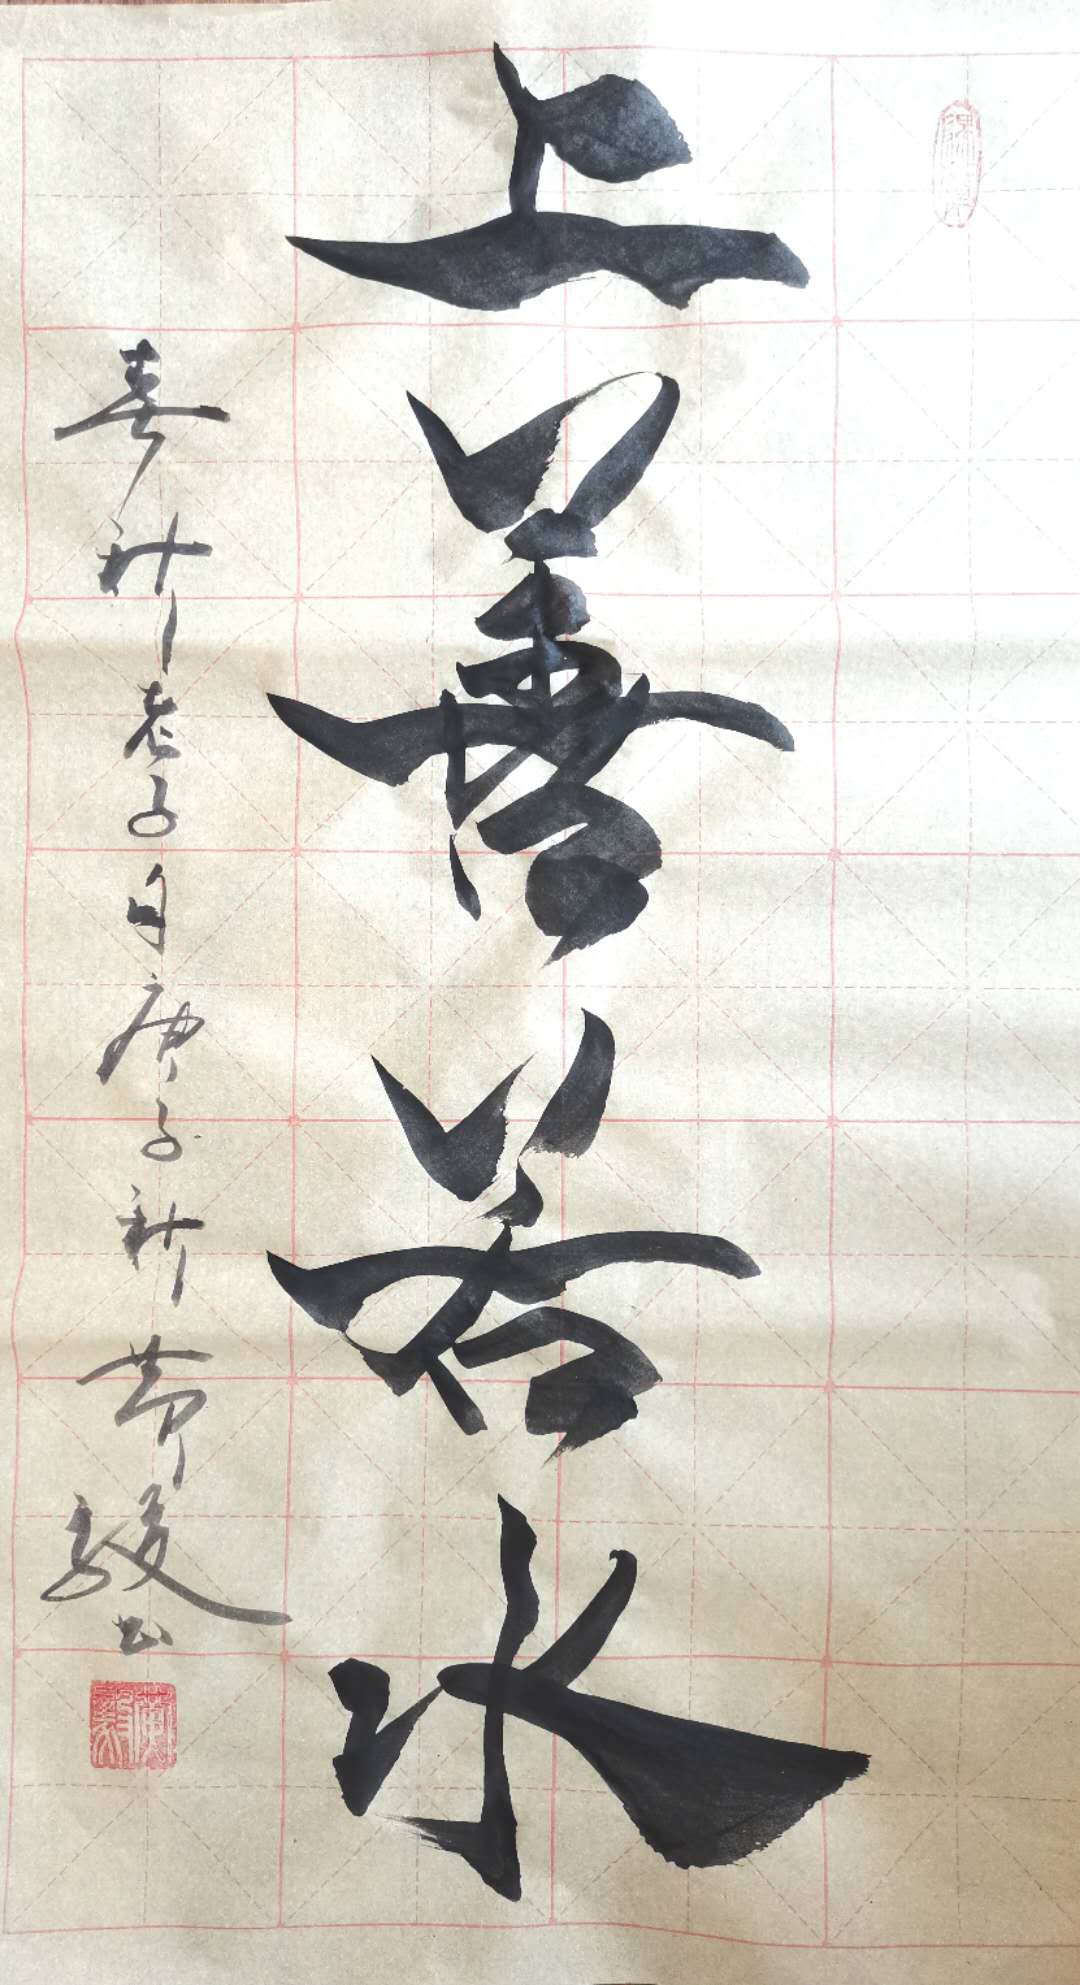 上善若水
春秋老子句庚子秋黄骏书